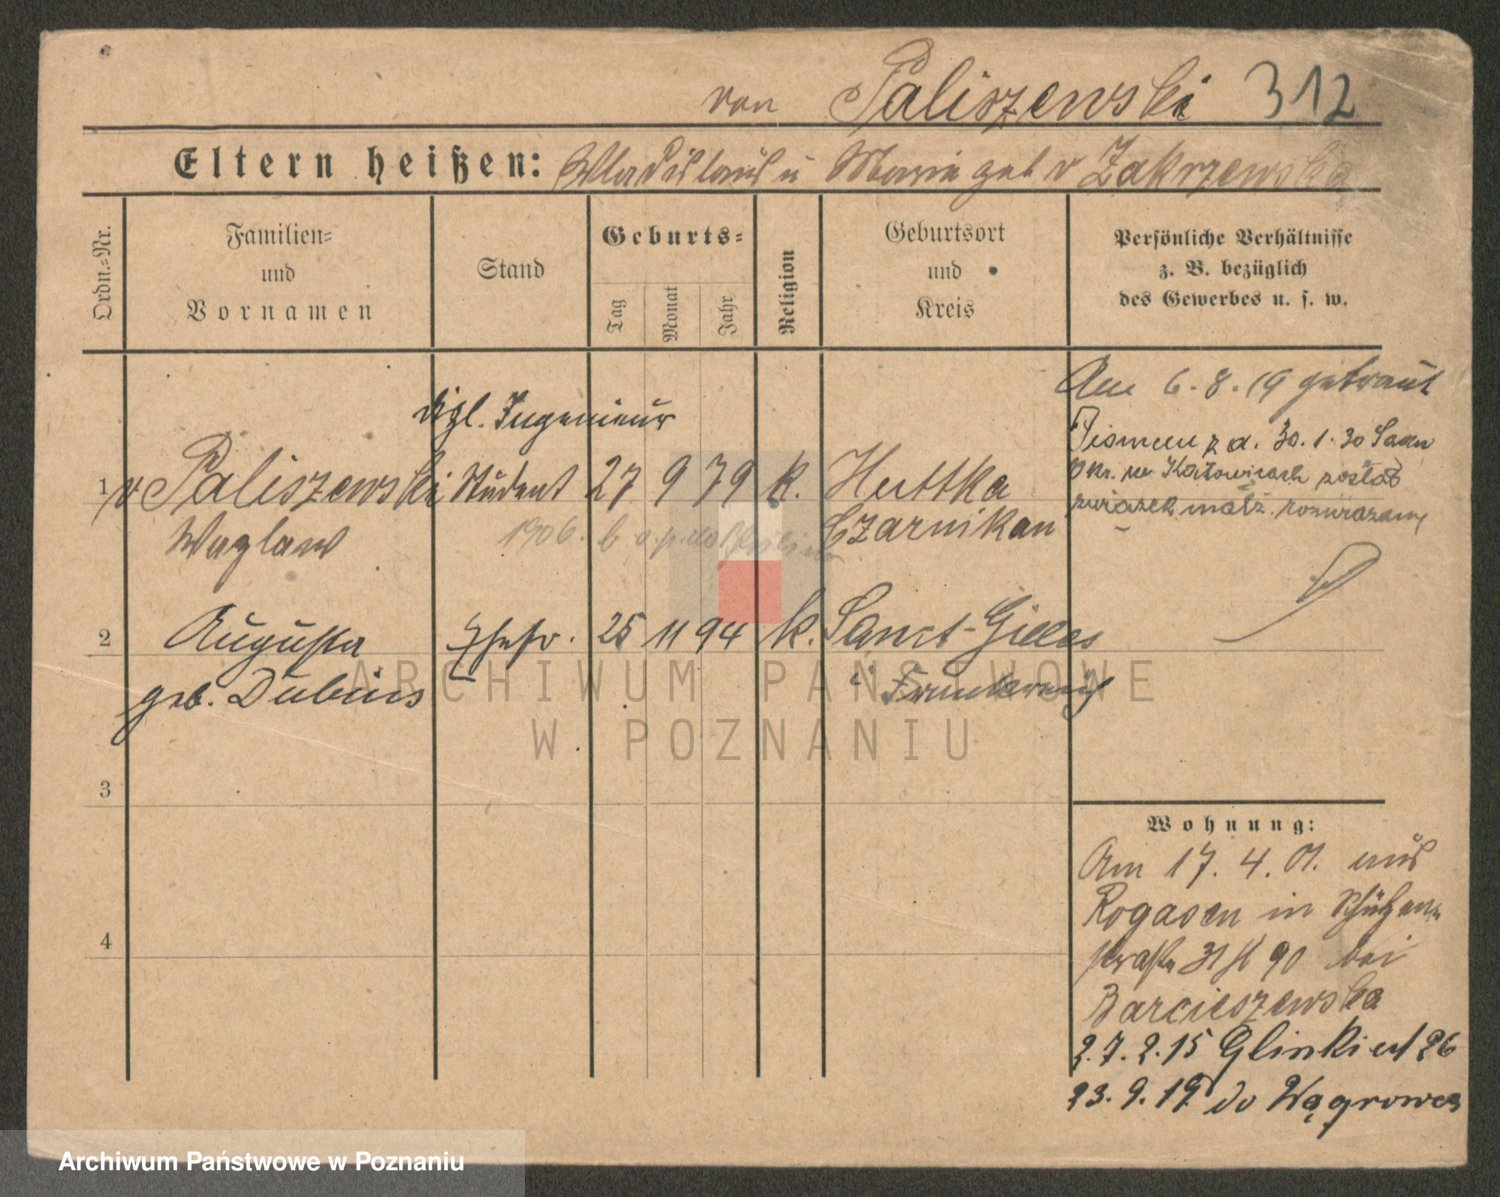 von Paliszewski 312
Eltern heißen: Wladislaus u Marie geb v Zakrzewska
Ordn.-Nr.
Familien-
und
Vornamen
Stand
Geburts-
Tag
Monat
Jahr
Religion
Geburtsort
und
Kreis
Persönliche Verhältnisse
z. B. bezüglich
des Gewerbes u. s. w.
Am 6.8.19 getraut
dipl. Ingenieur
1 v Paliszewski Student 27 9 79 k. Huttka
Wazlaw 1906. Czarnikau
Pismem z d. 30.1.30 Sądu
Okr. w Katowicach został
związek małż. rozwiązany
2 Augusta Ehefr. 25 11 94 k. Sanct-Gilles
geb. Dubuis i Frankreich
3
4
Wohnung:
Am 17.4.01. aus
Rogasen in Schützen-
straße 31 II 90 bei
Barciszewska
2.7.2.15 Glinki 26
23.9.19 do Wągrowca
ARCHIWUM PAŃSTWOWE
W POZNANIU
Archiwum Państwowe w Poznaniu